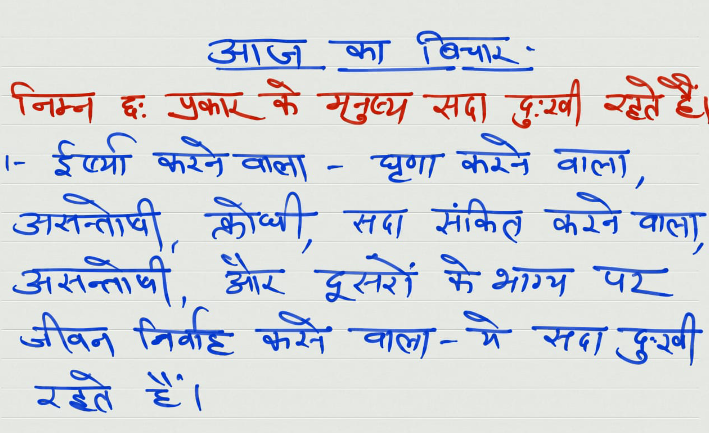 आज का विचार.
निम्न छः प्रकार के मनुष्य सदा दुःखी रहते हैं।
1- ईर्ष्या करने वाला - घृणा करने वाला,
असन्तोषी, क्रोधी, सदा संकित करने वाला,
असन्तोषी, और दूसरों के भाग्य पर
जीवन निर्वाह करने वाला - ये सदा दुःखी
रहते हैं।